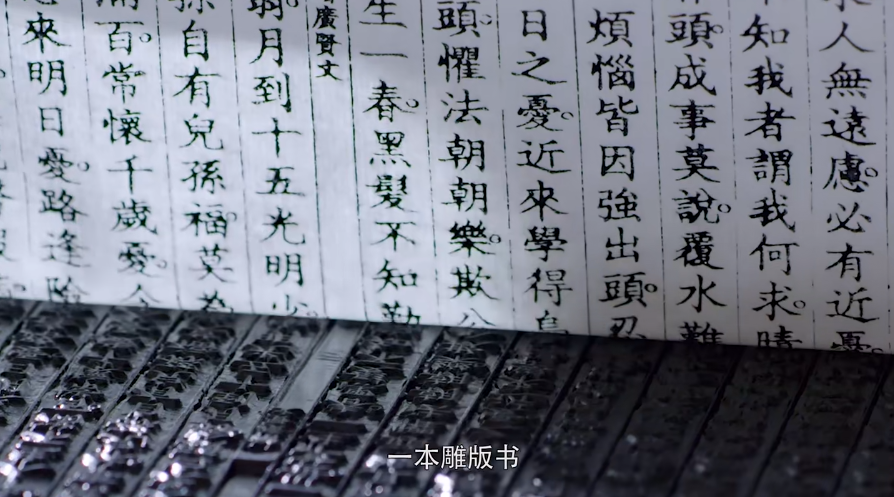 人無遠慮。必有近憂。
知我者謂我何求。晴
頭。成事莫說。覆水難
煩惱皆因強出頭。忍
日之憂。近來學得烏
頭。懼法朝朝樂。欺公
生一春。黑髮不知勤
廣賢文
弱。月到十五光明少
孫自有兒孫福。莫為
滿百。常懷千歲憂。今
來明日憂。路逢險
一本雕版书